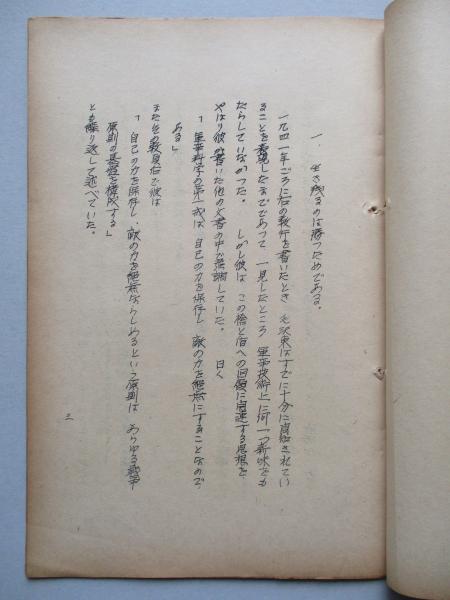 一、生き残るのは勝つためである。
一九四一年ごろに右の数行を書いたとき 毛沢東はすでに十分に自給されてい
ることを表現したまでであって 一見したところ 軍事技術上に何一つ新味をも
たらしていなかった。しかし彼は この槍と盾への回復に関連する思想を
やはり彼が書いた他の文書の中で強調していた。曰く
「軍事科学の第一我は 自己の力を保存し 敵の力を無にすることなので
ある」
またその数頁后で彼は
「自己の力を保存し 敵の力を無ならしめるという原則は あらゆる戦争
原則の基礎を構成する」
とも繰り返して述べていた。
三